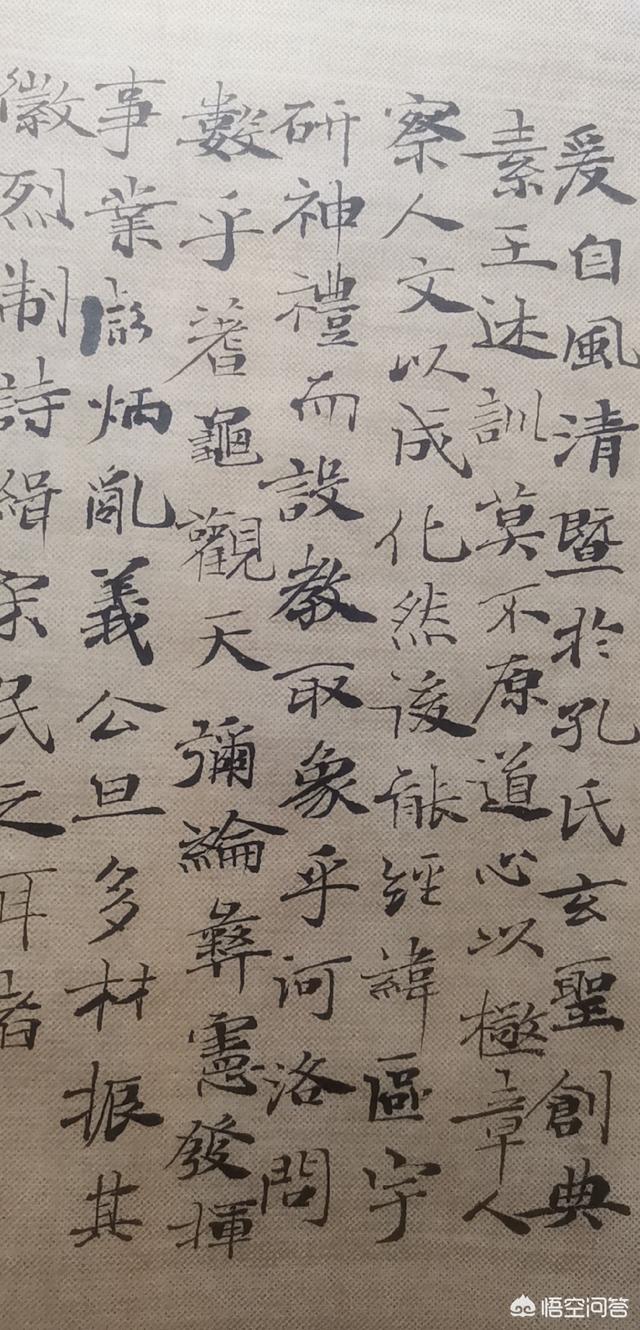 爰自風清暨於孔氏玄聖創典
素王述訓莫不原道心以極章人
察人文以成化然後能經緯區宇
研神禮而設教取象乎河洛問
數乎蓍龜觀天彌綸彝憲發揮
事業炳亂義公旦多材振其
徽烈制詩緝民之耳者
悟空问答